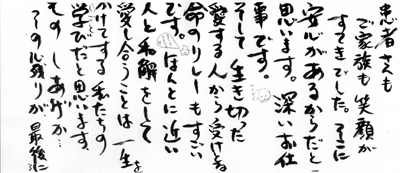 患者さんも
ご家族も笑顔が
すてきでした。そこに
安心があるからだと
思います。深いお仕
事です。
そして生き切った
愛する人から受けとる
命のリレーもすごい
です。ほんとに近い
人と和解をして
愛し合うことは一生を
かけてする私たちの
学びだと思います。
その しあげが…
その残りが最後に